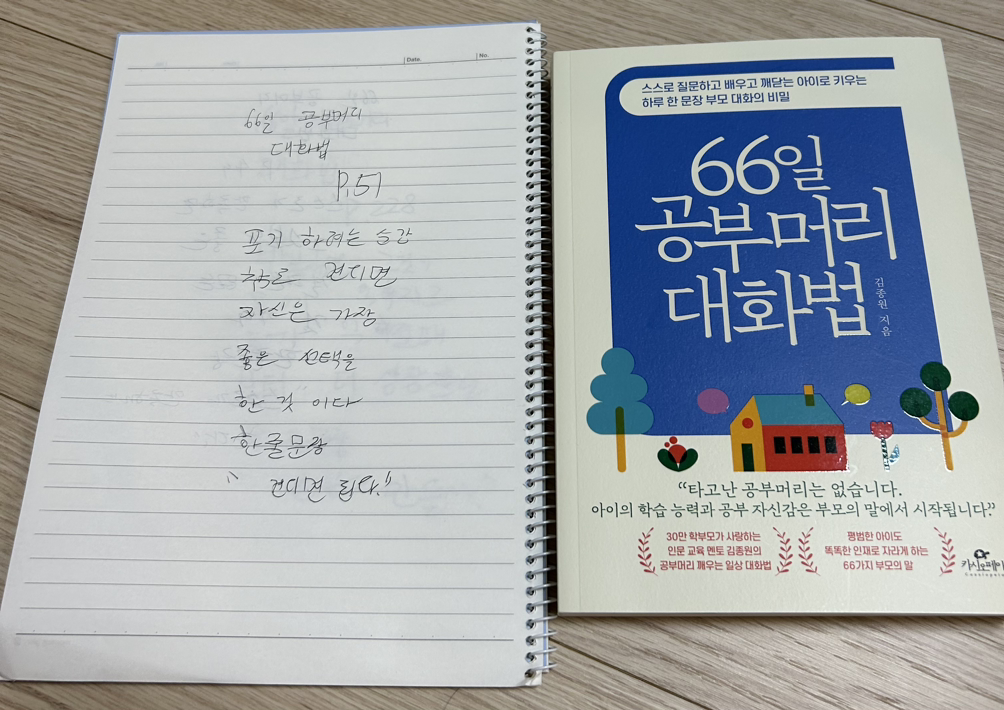 Date.
No.
66일 공부머리
대화법
P.51
포기 하려는 순간
견디면
자신은 가장
좋은 선택을
한 것 이다
한줄문장
"견디면 된다."
스스로 질문하고 배우고 깨닫는 아이로 키우는
하루 한 문장 부모 대화의 비밀
66일
공부머리
대화법
김종원 지음
“타고난 공부머리는 없습니다.
아이의 학습 능력과 공부 자신감은 부모의 말에서 시작됩니다.”
30만 학부모가 사랑하는
인문 교육 멘토 김종원의
공부머리 깨우는 일상 대화법
평범한 아이도
똑똑한 인재로 자라게 하는
66가지 부모의 말
카시오페아